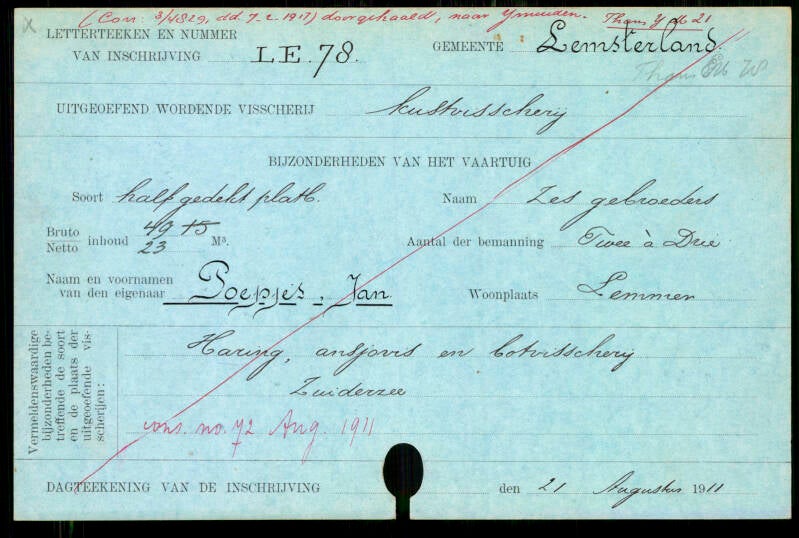 (Corr: 3/4829, dd. 7-2-1917) doorgehaald, naar Ymuiden. Thans Y M 21
LETTERTEEKEN EN NUMMER
VAN INSCHRIJVING LE. 78. GEMEENTE Lemsterland.
Thans 78
UITGEOEFEND WORDENDE VISSCHERIJ kustvisscherij
BIJZONDERHEDEN VAN HET VAARTUIG
Soort half gedekt platb. Naam Zes gebroeders
Bruto 49 15
Netto inhoud 23 M³. Aantal der bemanning Twee à Drie
Naam en voornamen
van den eigenaar Poepjes, Jan. Woonplaats Lemmer
Vermeldenswaardige
bijzonderheden be-
treffende de soort
en de plaats der
uitgeoefende vis-
scherijen:
Haring, ansjovis en botvisscherij
Zuiderzee
cons. no. 72 Aug. 1911
DAGTEEKENING VAN DE INSCHRIJVING den 21 Augustus 1911